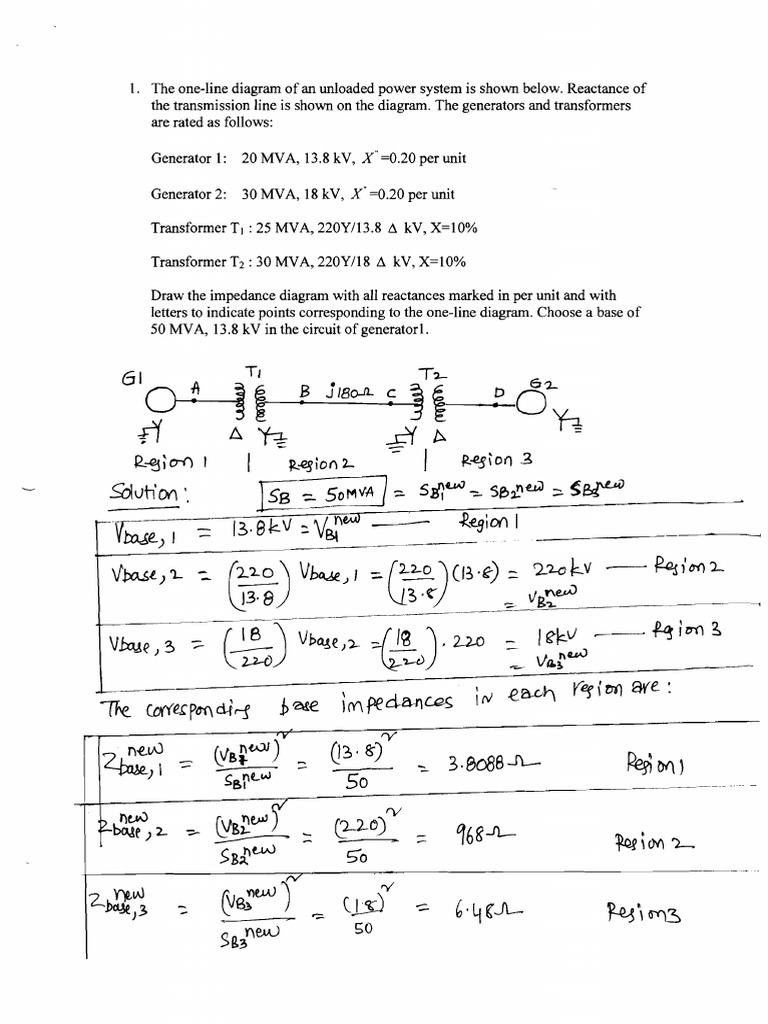 1. The one-line diagram of an unloaded power system is shown below. Reactance of
the transmission line is shown on the diagram. The generators and transformers
are rated as follows:
Generator 1: 20 MVA, 13.8 kV, X"=0.20 per unit
Generator 2: 30 MVA, 18 kV, X"=0.20 per unit
Transformer T1 : 25 MVA, 220Y/13.8 Δ kV, X=10%
Transformer T2 : 30 MVA, 220Y/18 Δ kV, X=10%
Draw the impedance diagram with all reactances marked in per unit and with
letters to indicate points corresponding to the one-line diagram. Choose a base of
50 MVA, 13.8 kV in the circuit of generator1.
G1 A T1 B j180Ω C T2 D G2
Y Δ Y Y Δ Y
Region 1 | Region 2 | Region 3
Solution: SB = 50MVA = SB1^new = SB2^new = SB3^new
Vbase,1 = 13.8kV = VB1^new — Region 1
Vbase,2 = (220/13.8) Vbase,1 = (220/13.8)(13.8) = 220kV — Region 2
= VB2^new
Vbase,3 = (18/220) Vbase,2 = (18/220).220 = 18kV — Region 3
= VB3^new
The corresponding base impedances in each region are:
Z^new base,1 = (VB1^new)^2/SB1^new = (13.8)^2/50 = 3.8088Ω Region 1
Z^new base,2 = (VB2^new)^2/SB2^new = (220)^2/50 = 968Ω Region 2
Z^new base,3 = (VB3^new)^2/SB3^new = (18)^2/50 = 6.48Ω Region3